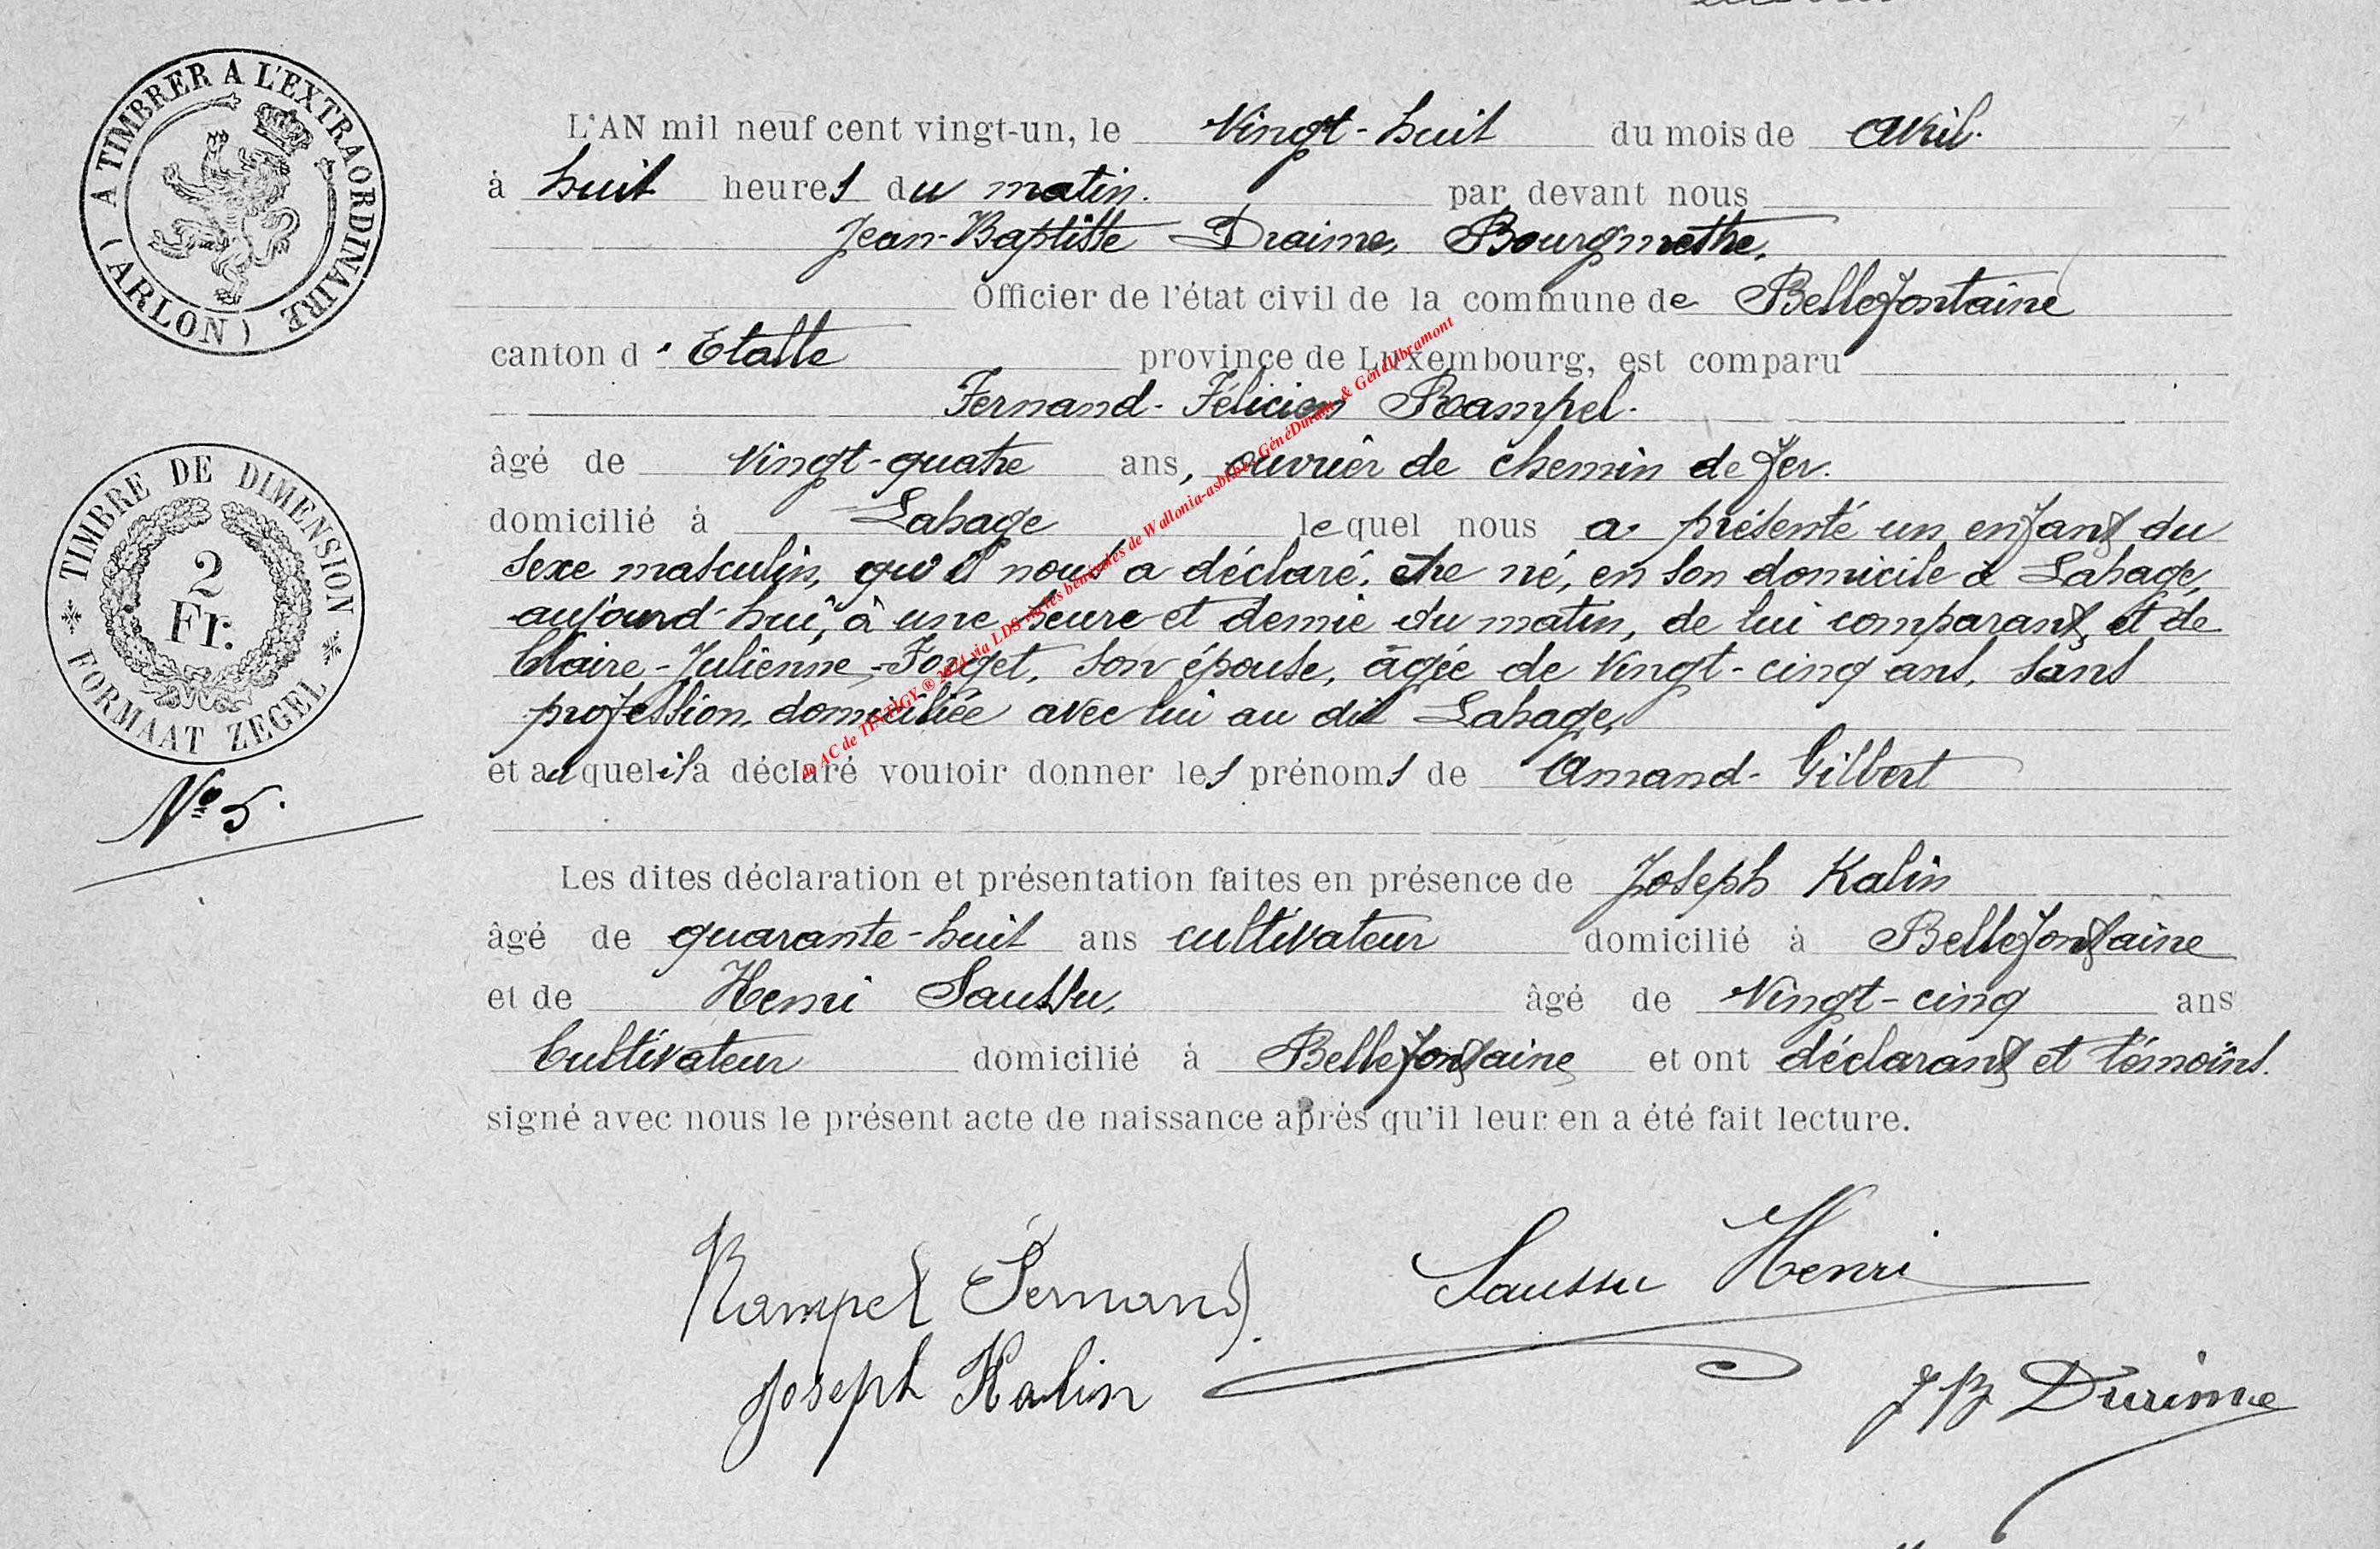 ( A TIMBRER A L'EXTRAORDINAIRE
( ARLON )
L'AN mil neuf cent vingt-un, le Vingt-huit du mois de avril.
à huit heures du matin. par devant nous
Jean-Baptiste Draime, Bourgmestre,
Officier de l'état civil de la commune de Bellefontaine
canton d'Etalle province de Luxembourg, est comparu
Fernand-Félicien Rampel.
âgé de vingt-quatre ans, ouvrier de chemin de fer.
TIMBRE DE DIMENSION
2
Fr.
FORMAAT ZEGEL
domicilié à Lahage lequel nous a présenté un enfant du
sexe masculin, qu'il nous a déclaré, être né, en son domicile à Lahage,
aujourd'hui, à une heure et demie du matin, de lui comparant, et de
Claire-Julienne-Forget, son épouse, âgée de vingt-cinq ans, sans
profession, domiciliée avec lui au dit Lahage,
et auquel il a déclaré vouloir donner les prénoms de Amand-Gilbert
N° 5.
Les dites déclaration et présentation faites en présence de Joseph Kalin
âgé de quarante-huit ans cultivateur domicilié à Bellefontaine
et de Henri Saussu, âgé de Vingt-cinq ans
Cultivateur domicilié à Bellefontaine et ont déclarant et témoins.
signé avec nous le présent acte de naissance après qu'il leur en a été fait lecture.
Rampel Fernand. Saussu Henri
Joseph Kalin
J B Draime
de AC de TINTIGY ® 2024 via LDS via les bénévoles de Wallonia-asbl.be - GénéDinant & GénéLibramont